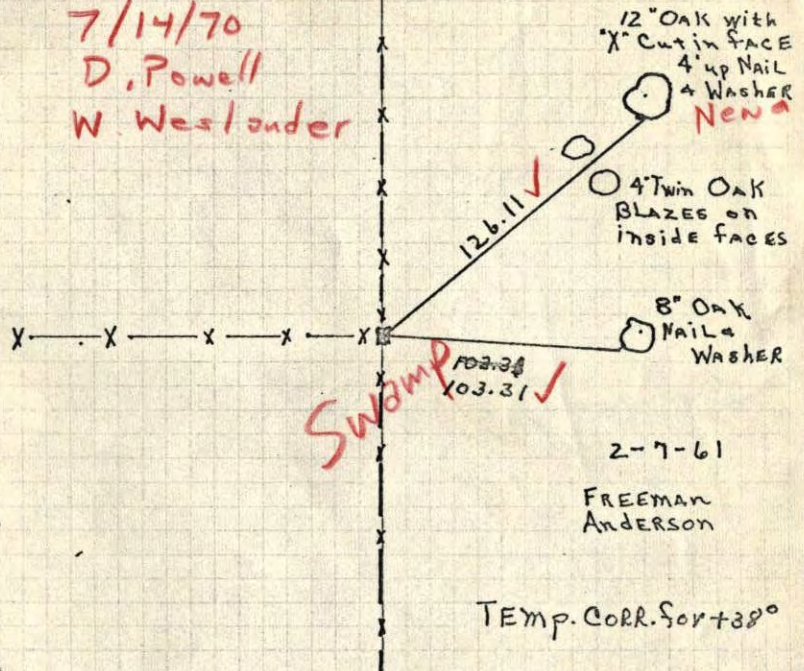 7/14/70
D. Powell
W. Weslander
12" OAK with
"X" Cut in FACE
4' up NAIL
& WASHER
126.11 ✓
4" Twin OAK
BLAZES on
inside FACES
8" OAK
NAIL &
WASHER
Swamp
103.31 ✓
2-7-61
FREEMAN
AndERSON
TEMP. CORR. for +38°